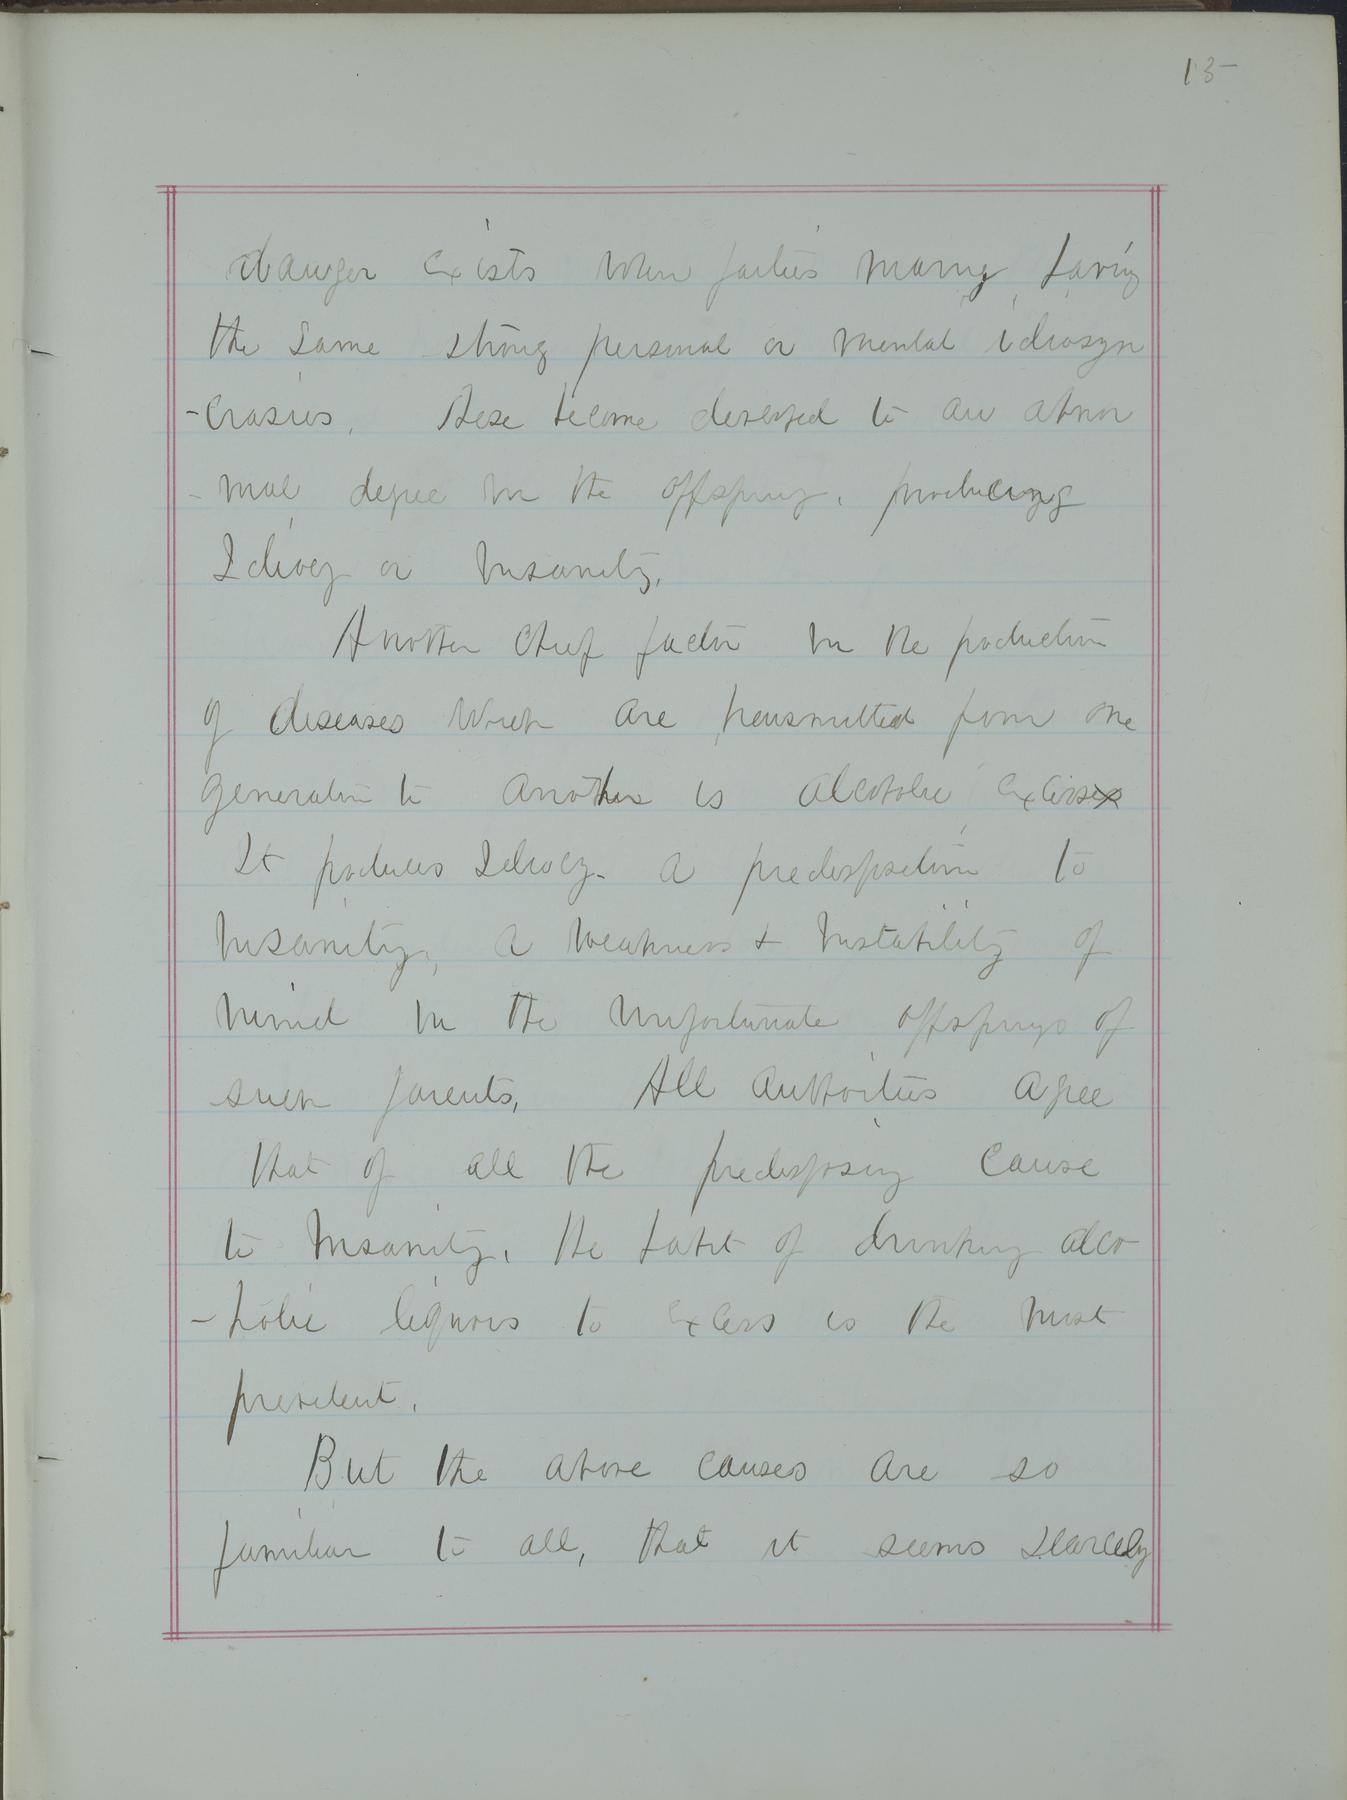 13
danger exists when parties marry having
the same strong personal or mental idiosyn
-crasies. These become developed to an abnor
-mal degree in the offspring, producing
Idiocy or Insanity.
Another chief factor in the production
of diseases which are transmitted from one
generation to another is alcoholic excesses
It produces Idiocy. a predisposition to
Insanity, a weakness & instability of
mind in the unfortunate offsprings of
such parents. All authorities agree
that of all the predisposing cause
to Insanity, the habit of drinking alco
-holic liquors to excess is the most
prevalent.
But the above causes are so
familiar to all, that it seems scarcely